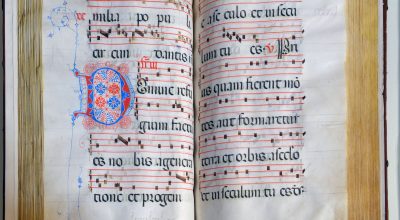 milia po pu
cir cum dantis
Domine refu
gium factu
es no bis agenera
cione et progeni
e a sec culo et in secu
lum tu es. V. Pri
us quam fierent mō
tes aut formaret
terra et orbis a seclo
et in seculum tu es